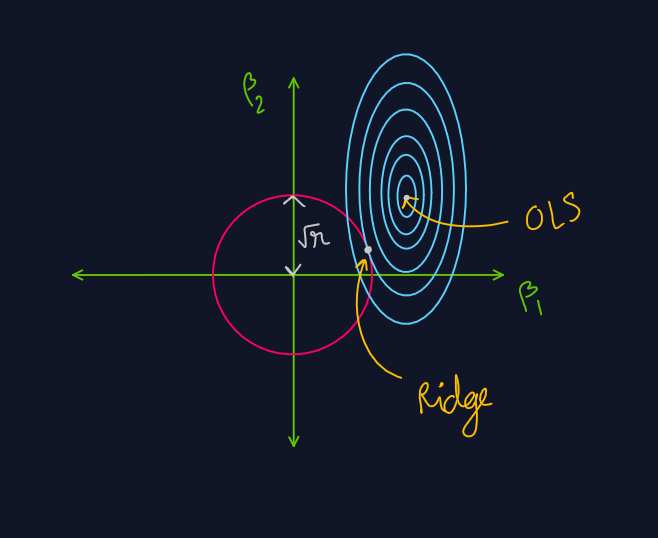 β₂
√r
OLS
β₁
Ridge